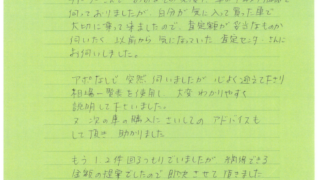 何っておりましたが 自分が 気に入って買った車で
大切に乗って来ましたので、査定額が妥当なものか
何いたく 以前から 気になっていた 査定センターさんに
お伺いしました。
アポなしで 突然 伺いましたが 心よく迎えて下さり
相場一覧表を使用して、大変 わかりやすく
説明して下さいました。
又 次の車の購入に さいしての アドバイスも
して頂き 助かりました
もう1、2件回るつもりでいましたが 納得できる
金額の提案でしたので 即決させて頂きました